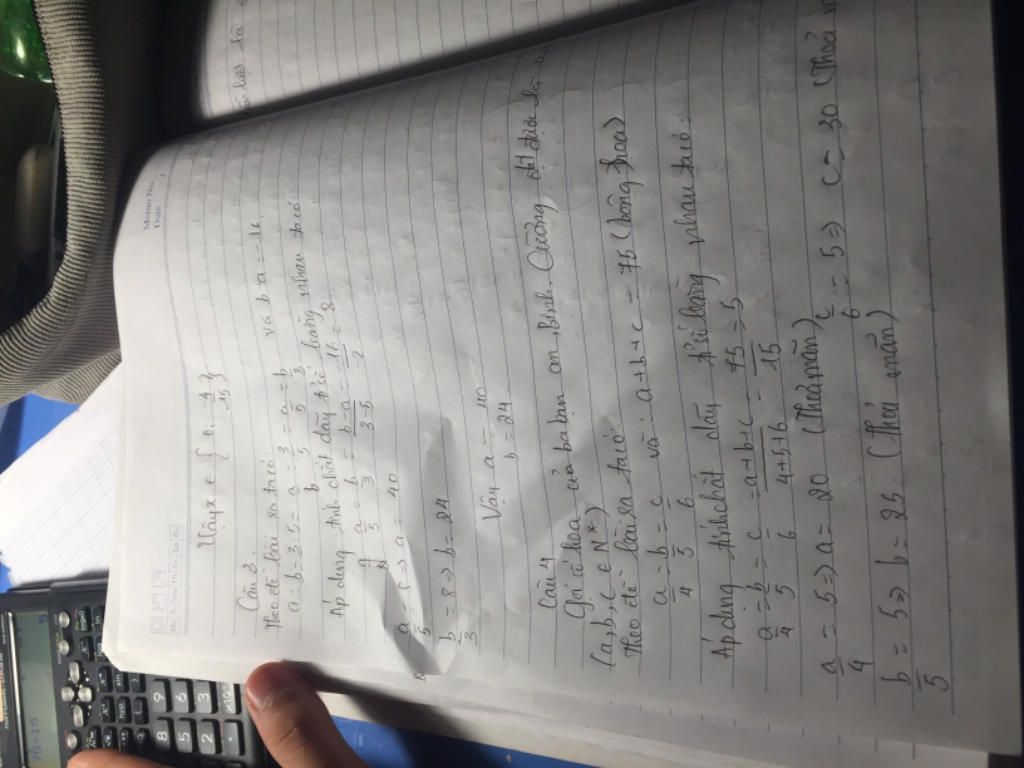 Memo No.
Date
Mo Tu We Th Fr Sa Su
Vậy x ∈ { 0; 4/15 }
Câu 3.
Theo đề bài ra ta có:
a : b = 3 : 5 = a = 3 = a = b và b a = -16.
b 5 5 3
Áp dụng tính chất dãy tỉ số bằng nhau ta có:
a = b = b-a = 16 = 8
5 3 3-5 -2
a = 8 => a = 40
5
b = 8 => b = 24
3
Vậy a = 40
b = 24
Câu 4
Gọi số hoa của ba bạn an, Bình, Cường đạt được là
(a, b, c ∈ N*)
Theo đề bài ra ta có:
a = b = c và: a+b+c = 75 (bông hoa)
4 5 6
Áp dụng tính chất dãy tỉ số bằng nhau ta có:
a = b = c = a+b+c = 75 = 5
4 5 6 4+5+6 15
a = 5 => a = 20 (Thoả mãn) c = 5 => c = 30 (Thoả
4 6
b = 5 => b = 25 (Thoả mãn)
5
75÷15
5